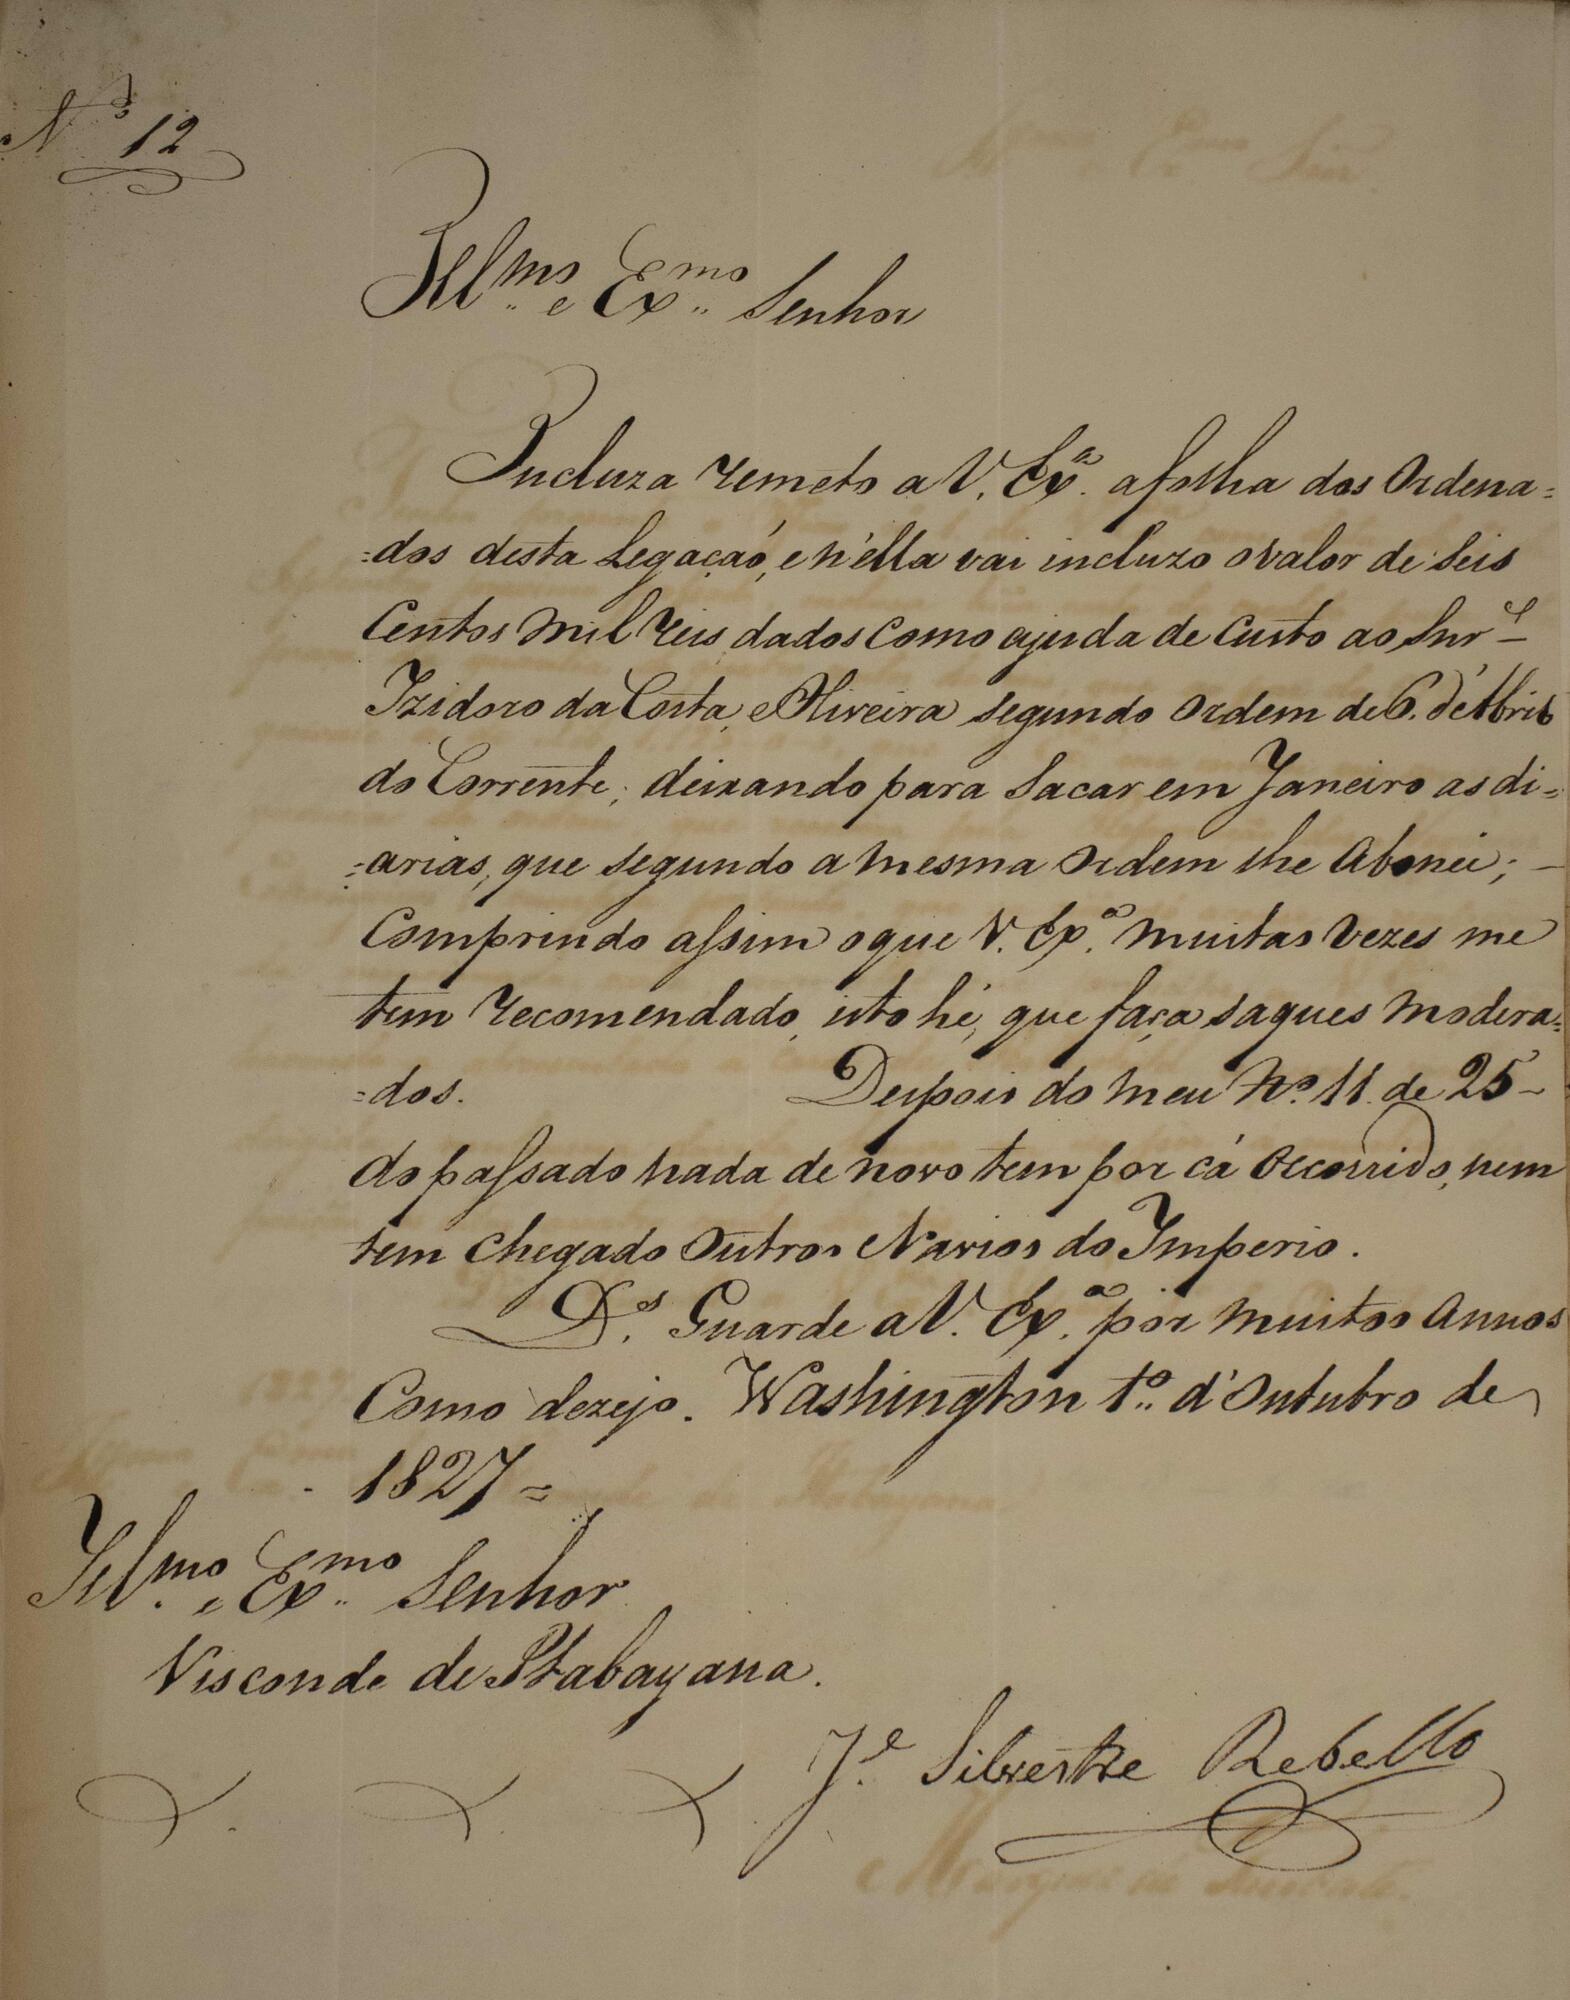 Nº 12
Illmo e Exmo Senhor
Incluza remeto a V. Exª. a folha dos Ordena=
=dos desta Legaçaó, e n'élla vai incluzo o valor de Seis
Centos Mil Reis, dados Como ajuda de Custo ao Snr
Izidoro da Costa, e Oliveira segundo Ordem de 6. d'Abril
do Corrente; deixando para Sacar em Janeiro as di=
=arias, que segundo a mesma Ordem lhe Abonei; –
Comprindo assim o que V. Exª. muitas vezes me
tem recomendado, isto hé, que faça saques modera=
=dos. Depois do meu Nº. 11. de 25 –
do passado nada de novo tem por cá Occorrido, nem
tem Chegado Outros Navios do Imperio.
Ds. Guarde a V. Exª. por muitos Annos
Como dezejo. Washington 1º. d'Outubro de
1827 =
Illmo. e Exmo. Senhor
Visconde de Itabayana.
Je. Silvestre Rebello